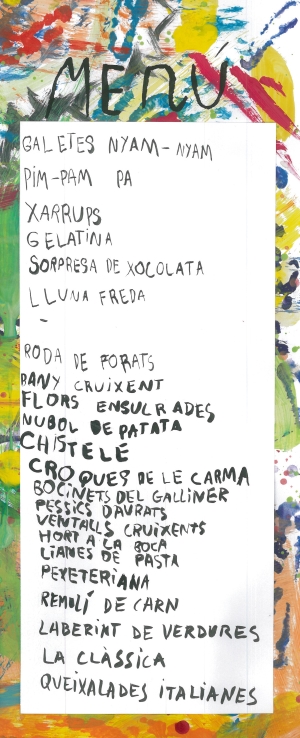 MENÚ
GALETES NYAM-NYAM
PIM-PAM PA
XARRUPS
GELATINA
SORPRESA DE XOCOLATA
LLUNA FREDA
-
RODA DE FORATS
BANY CRUIXENT
FLORS ENSUCRADES
NUBOL DE PATATA
CHISTELÉ
CROQUES DE LE CARMA
BOCINETS DEL GALLINER
PESSICS DAURATS
VENTALLS CRUIXENTS
HORT A LA BOCA
LIANES DE PASTA
PEIXETERIANA
REMOLÍ DE CARN
LABERINT DE VERDURES
LA CLÀSSICA
QUEIXALADES ITALIANES